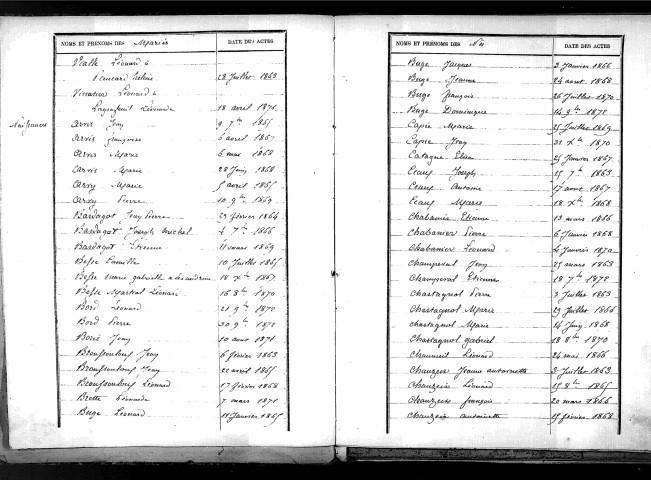 NOMS ET PRÉNOMS DES Mariés DATE DES ACTES
Vialle Léonard à
28 Juillet 1863
Léonard à
Léonarde 18 avril 1871
Naissances
Arvis Jean 9 7bre 1865
Arvis françoise 6 avril 1867
Arvis Marie 6 mai 1868
Arvis Marie 28 Juin 1868
Arvy Marie 5 avril 1865
Arvy Pierre 10 9bre 1869
Bardagot Jean Pierre 29 février 1864
Bardagot Joseph Michel 4 7bre 1866
Bardagot Étienne 11 mars 1869
Besse Camille 10 Juillet 1865
Besse Marie gabrielle alexandrine 18 Xbre 1867
Besse Martial Léonard 16 8bre 1870
Bord Léonard 21 9bre 1870
Bord Pierre 30 9bre 1872
Borie Jean 10 aout 1871
Broussouloux Jean 6 février 1863
Broussouloux Jean 22 avril 1865
Broussouloux Léonard 17 février 1868
Brette Léonarde 7 mars 1871
Buge Léonard 11 Janvier 1865
NOMS ET PRÉNOMS DES Nés DATE DES ACTES
Buge Jacques 2 Janvier 1866
Buge Jeanne 24 aout 1868
Buge françois 26 Juillet 1870
Buge Dominique 14 9bre 1872
Capie Marie 25 Juillet 1869
Capie Jean 31 Xbre 1870
Catague Elisa 25 Janvier 1867
Ecaux Joseph 25 7bre 1863
Ecaux Antoine 17 aout 1867
Ecaux Marie 18 Xbre 1868
Chabanier Etienne 13 mars 1866
Chabanier Pierre 6 Janvier 1868
Chabanier Léonard 4 Janvier 1870
Champeval Jean 25 mars 1863
Champeval Etienne 18 7bre 1872
Chastagnol Pierre 3 Juillet 1863
Chastagnol Marie 29 Juillet 1866
Chastagnol Marie 24 Juin 1868
Chastagnol gabriel 18 8bre 1870
Chaumeil Léonard 24 mai 1866
Chauzeix Jeanne antoinette 3 Juillet 1863
Chauzeix Léonard 15 8bre 1865
Chauzeix françois 20 mars 1866
Chauzeix antoinette 15 février 1868